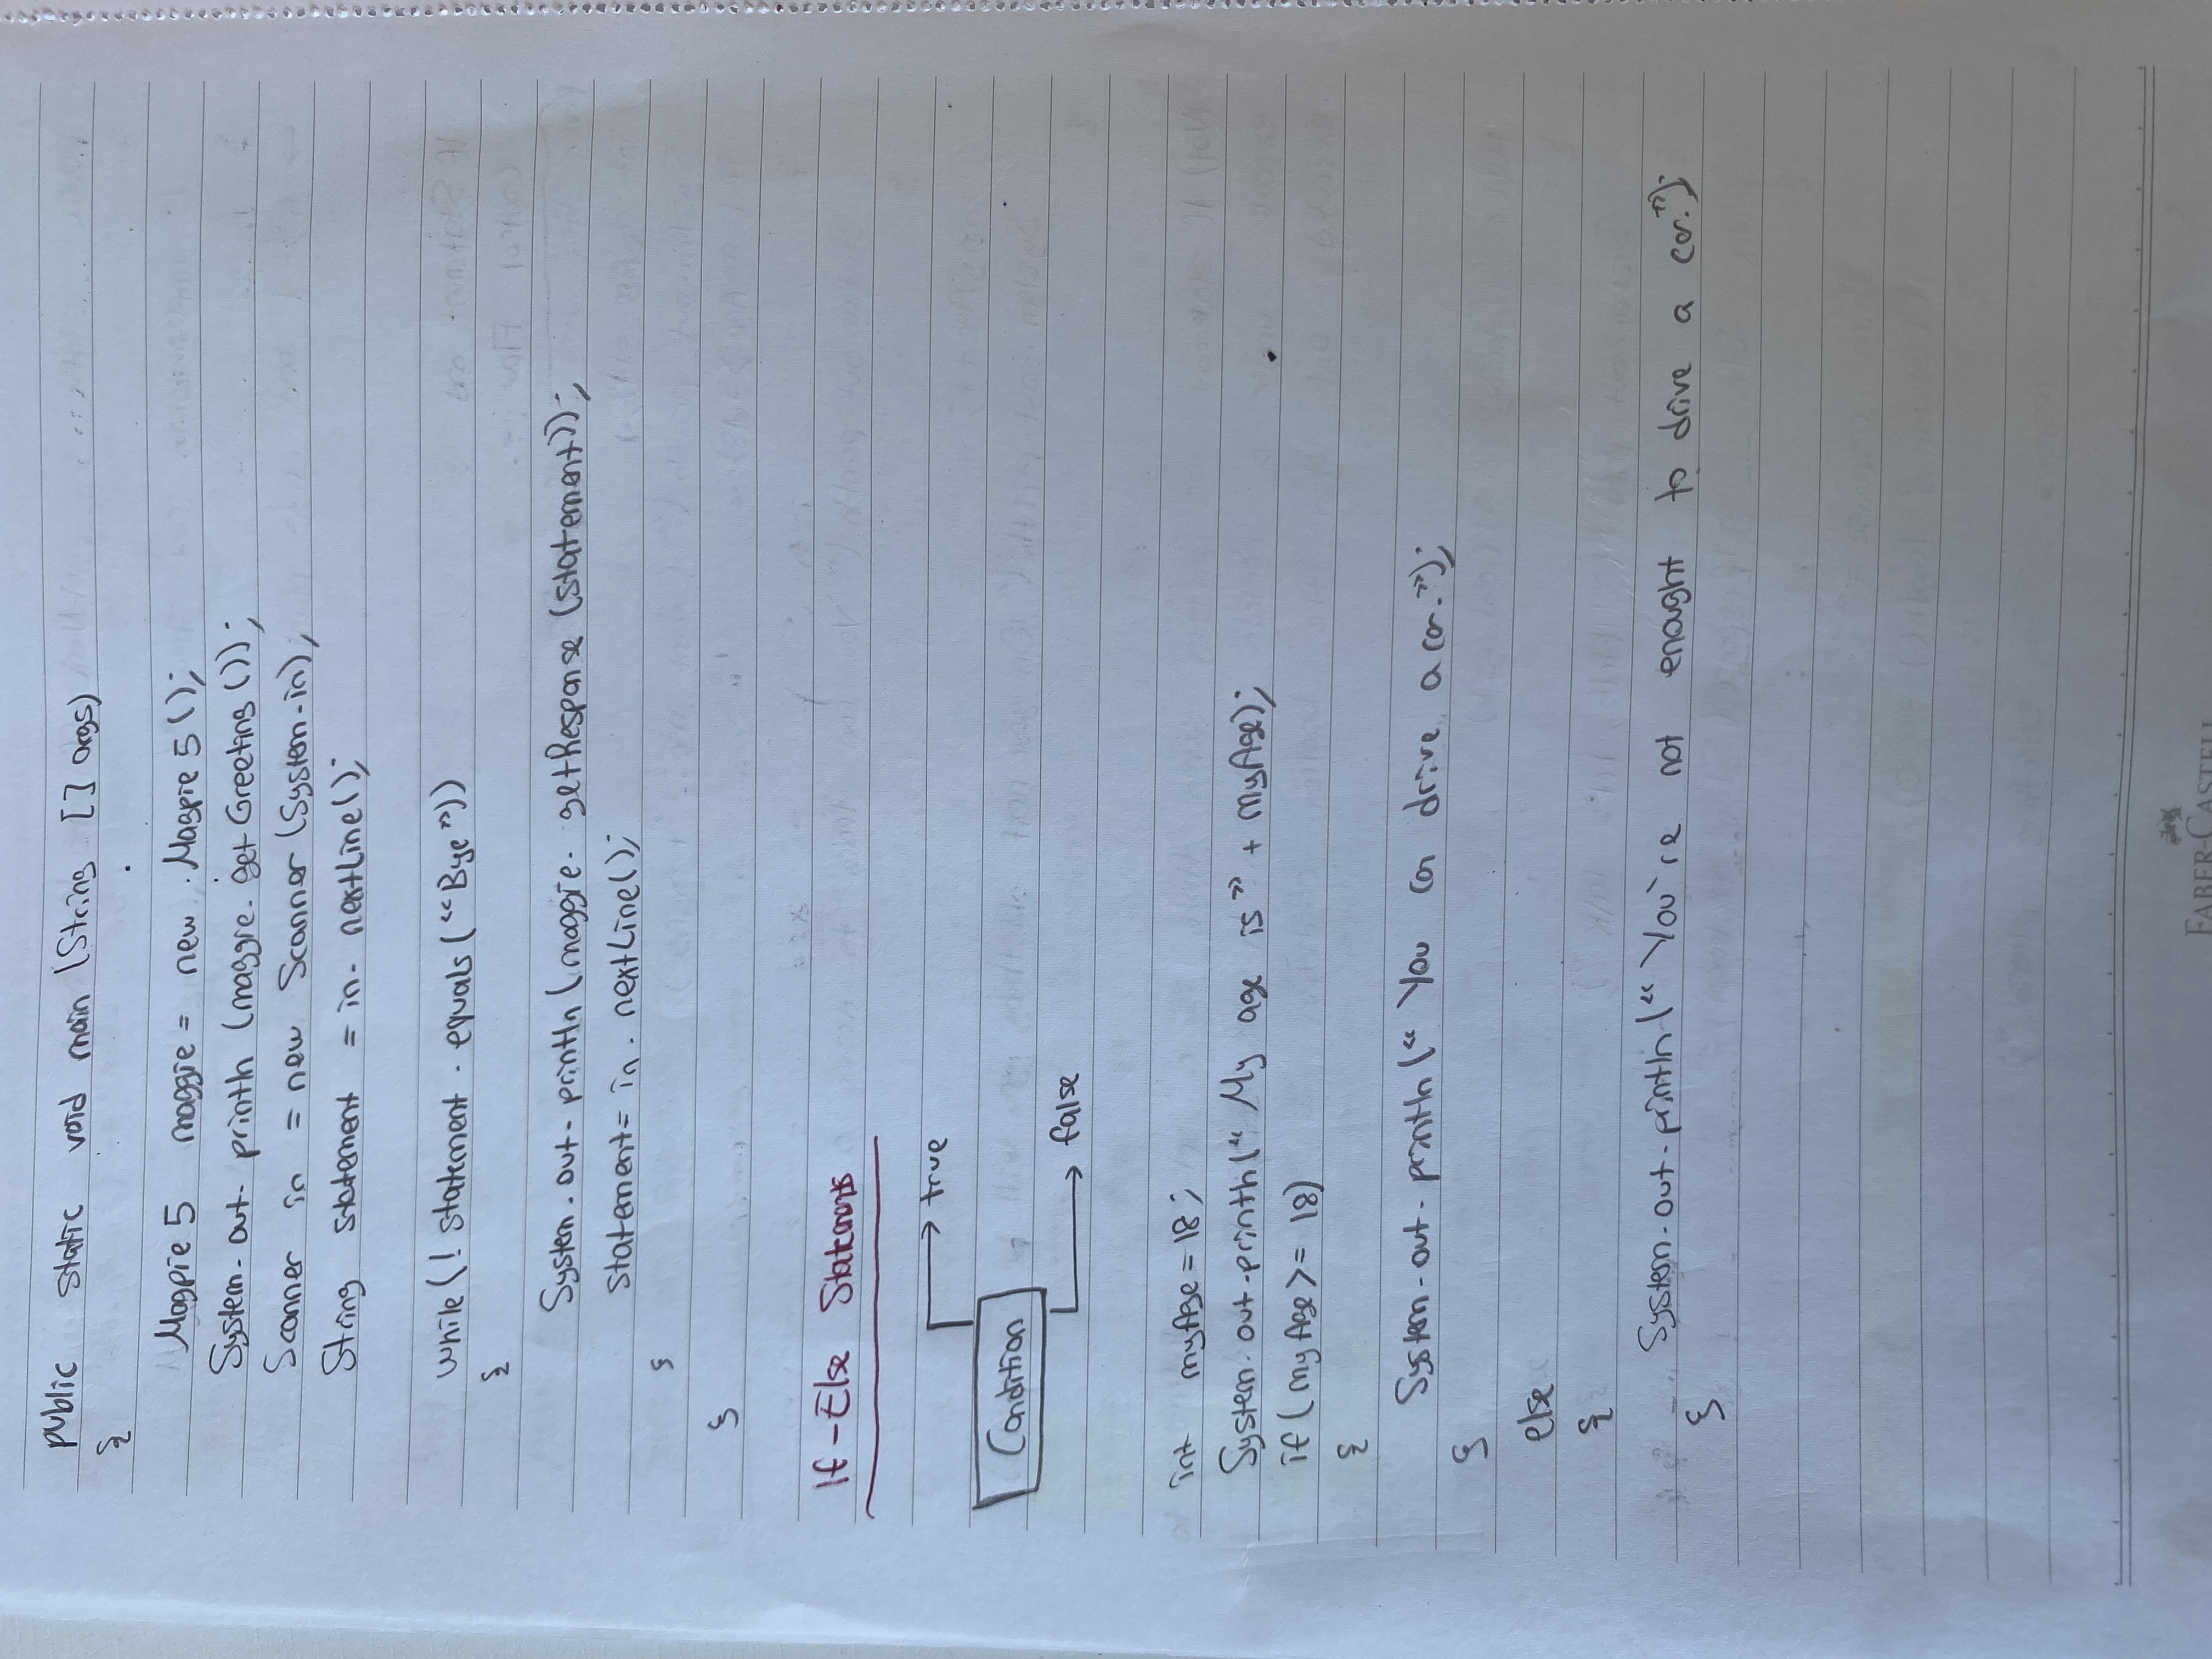 public static void main (String [] args)
{
Magpie 5 maggie = new Magpie 5 ();
System.out.println (maggie.getGreeting ());
Scanner in = new Scanner (System.in);
String statement = in.nextLine();
while (! statement.equals (“Bye”))
{
System.out.println (maggie.getResponse (statement));
statement = in.nextLine();
}
}
If-Else Statements
true
Condition
false
int myAge = 18;
System.out.println (“My age is” + myAge);
if (myAge >= 18)
{
System.out.println (“You can drive a car.”);
}
else
{
System.out.println (“You're not enought to drive a car.”);
}
FABER-CASTELL